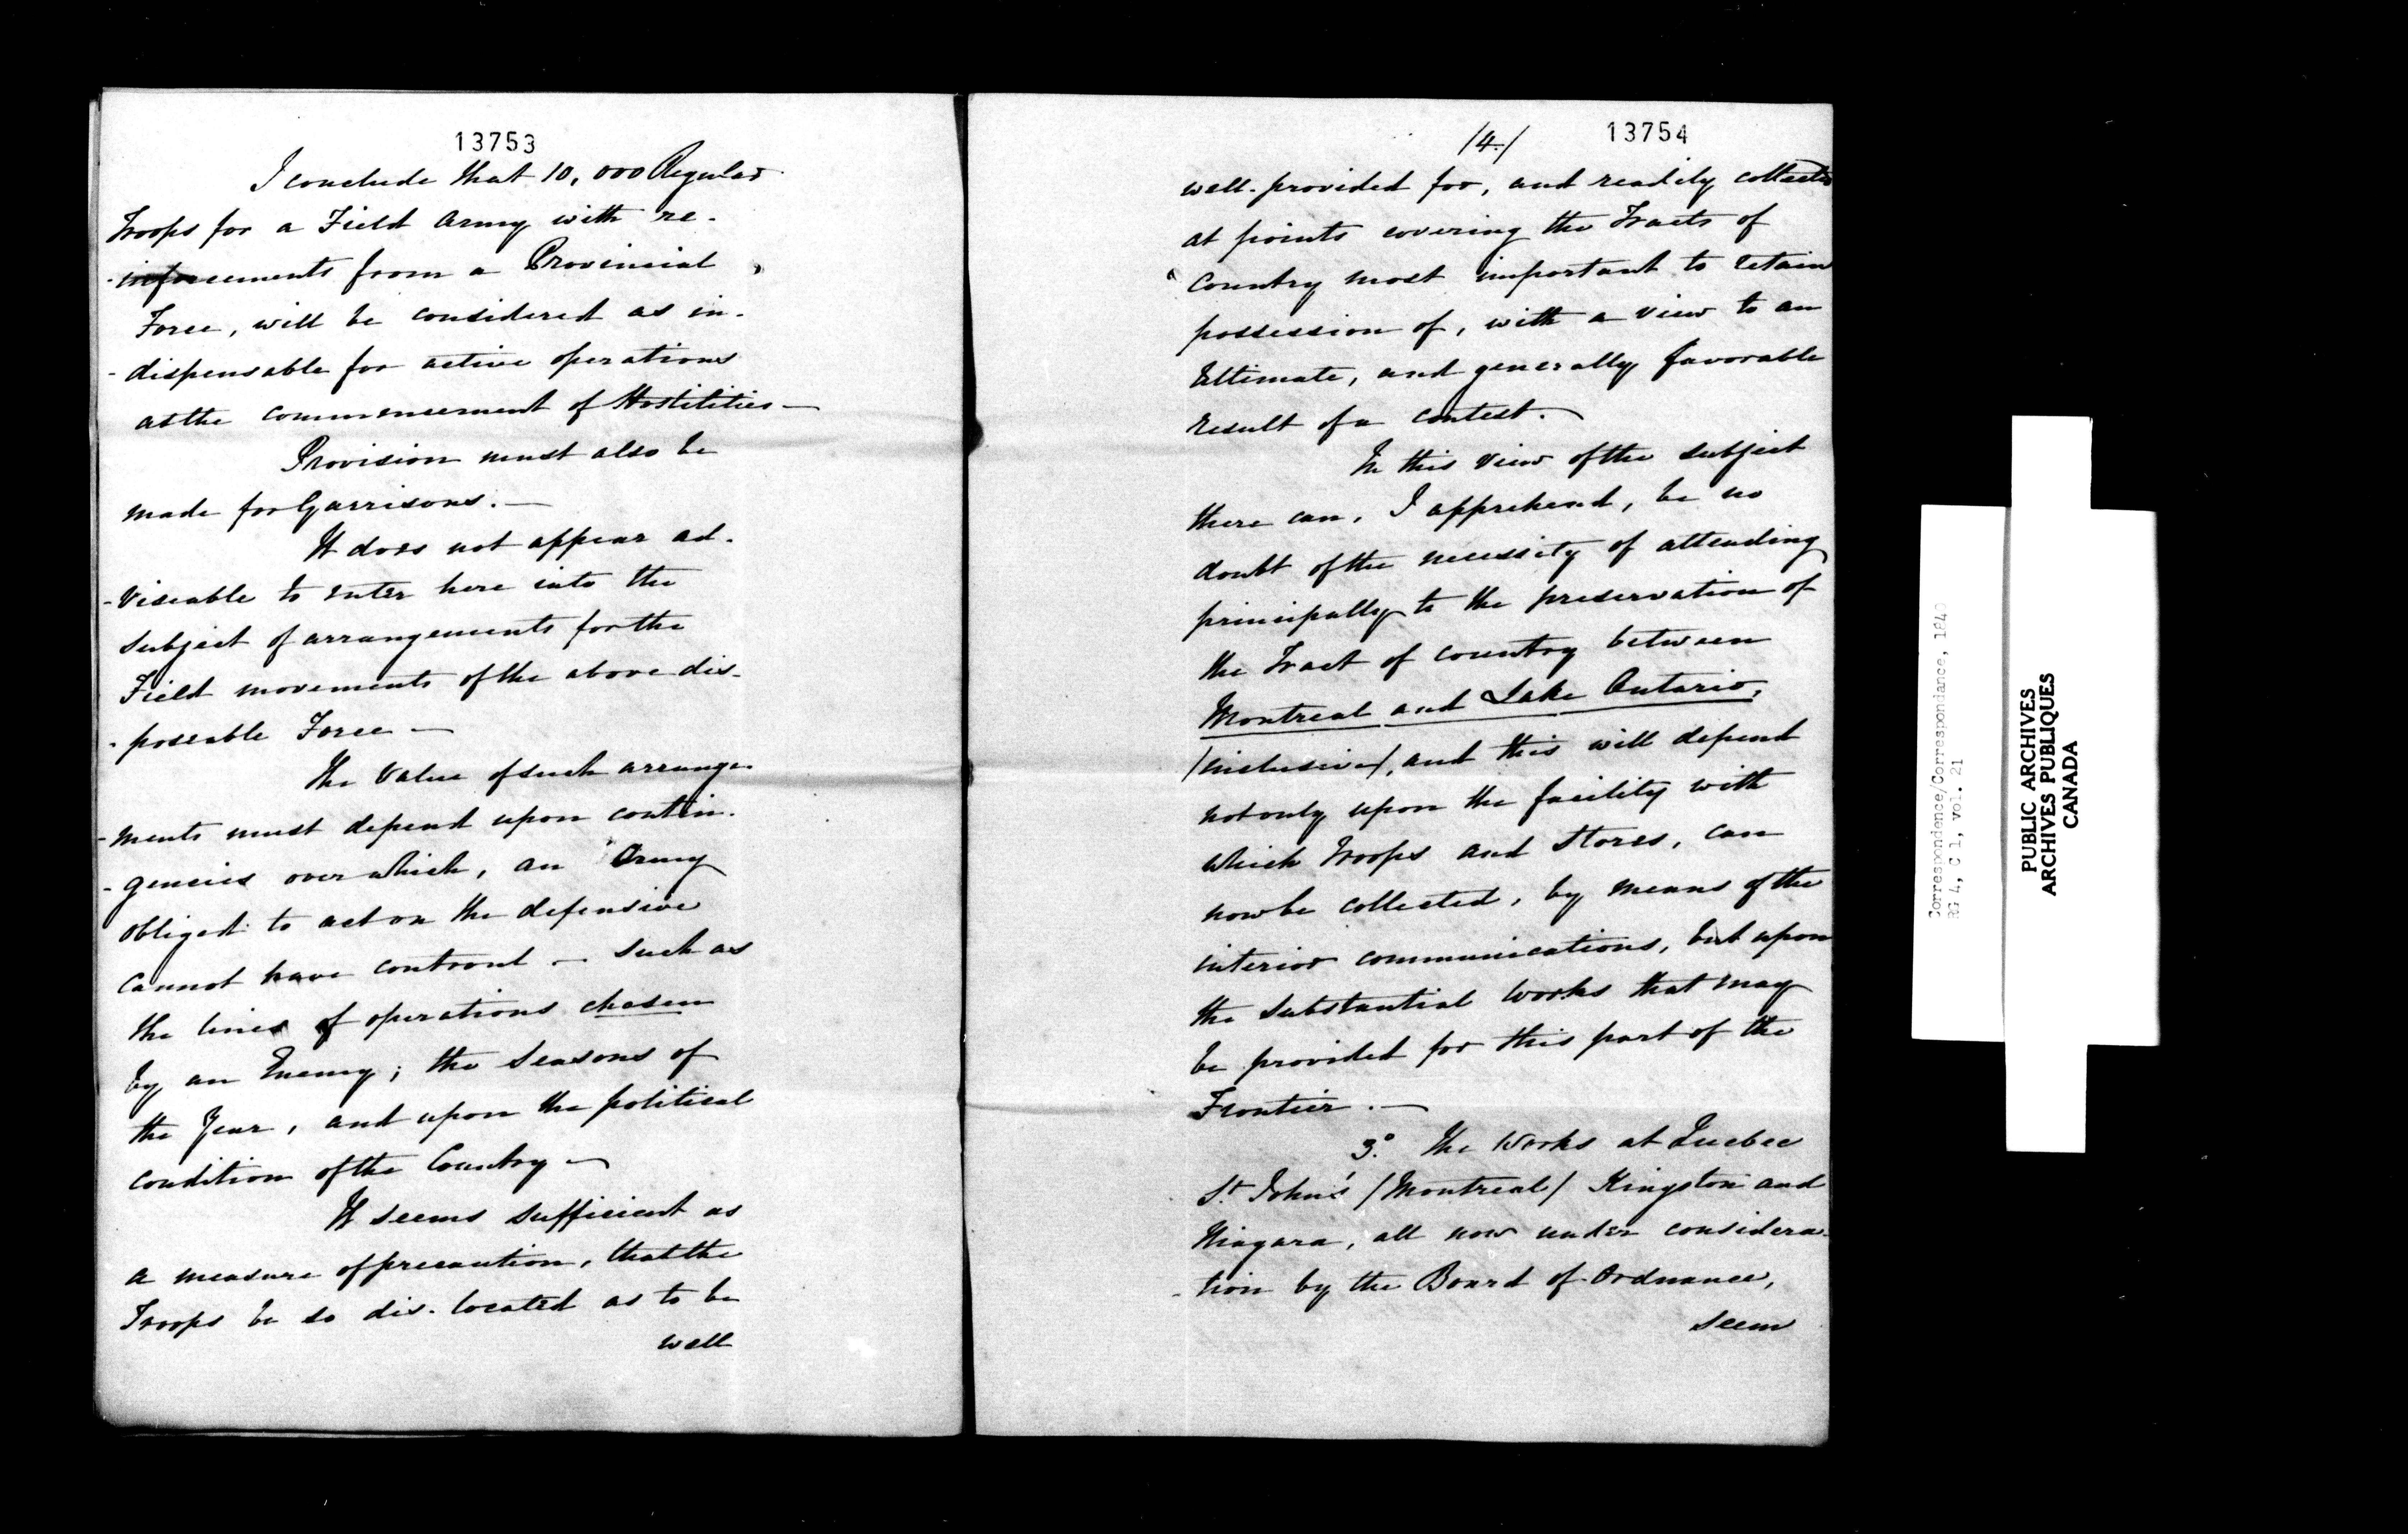 13753
I conclude that 10,000 Regular
Troops for a Field Army with re-
-inforcements from a Provincial
Force, will be considered as in-
-dispensable for active operations
at the commencement of Hostilities —
Provision must also be
made for Garrisons. —
It does not appear ad-
-viseable to enter here into the
subject of arrangements for the
Field movements of the above dis-
-poseable Force —
The value of such arrange-
-ments must depend upon contin-
-gencies over which, an Army
obliged to act on the defensive
cannot have controul — such as
the lines of operations chosen
by an Enemy; the Seasons of
the Year, and upon the political
condition of the Country —
It seems sufficient as
a measure of precaution, that the
Troops be so dis-located as to be
well
/4./
13754
well-provided for, and readily collected
at points covering the Tracts of
Country most important to retain
possession of, with a view to an
Ultimate, and generally favorable
result of a contest. —
In this view of the subject
there can, I apprehend, be no
doubt of the necessity of attending
principally to the preservation of
the Tract of country between
Montreal and Lake Ontario,
/inclusive/, and this will depend
not only upon the facility with
which Troops and Stores, can
now be collected, by means of the
interior communications, but upon
the substantial works that may
be provided for this part of the
Frontier. —
3.° The Works at Quebec
St. John's /Montreal/ Kingston and
Niagara, all now under considera-
-tion by the Board of Ordnance,
seem
Correspondence/Correspondance, 1840
RG 4, C 1, vol. 21
PUBLIC ARCHIVES
ARCHIVES PUBLIQUES
CANADA